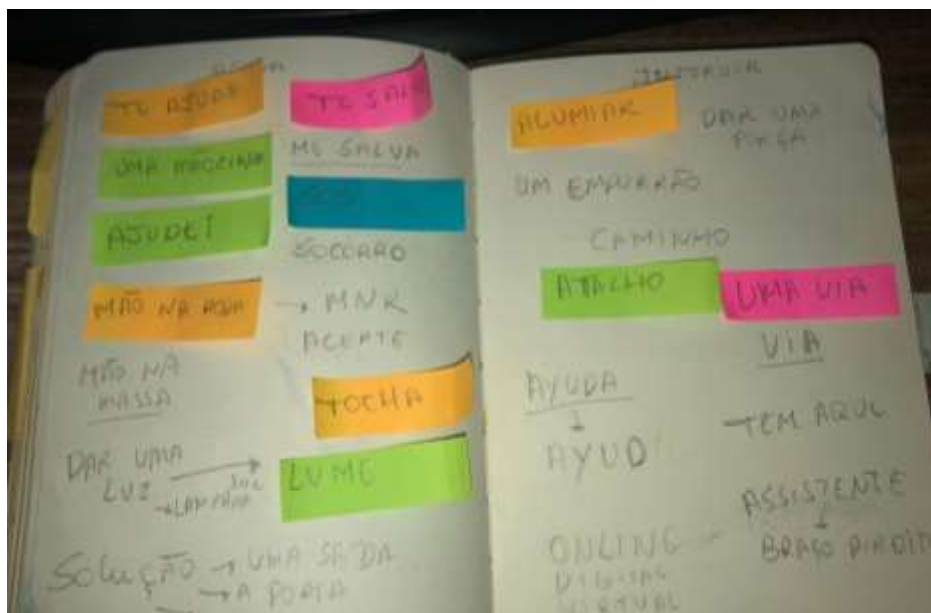 TE AJUDO
TE SALV
UMA MÃOZINHA
ME SALVA
SOS
AJUDEI
SOCORRO
MÃO NA RODA
→ MNR
ACERTE
MÃO NA
MASSA
TOCHA
DAR UMA
LUZ
→ LAMPADA
LUME
SOLUÇÃO → UMA SAÍDA
→ A PORTA
ALUMIAR
DAR UMA
FORÇA
UM EMPURRÃO
CAMINHO
ATALHO
UMA VIA
VIA
AYUDA
↓
AYUD
TEM AQUI
ASSISTENTE
↓
BRAÇO
ONLINE
DIGITAL
VIRTUAL